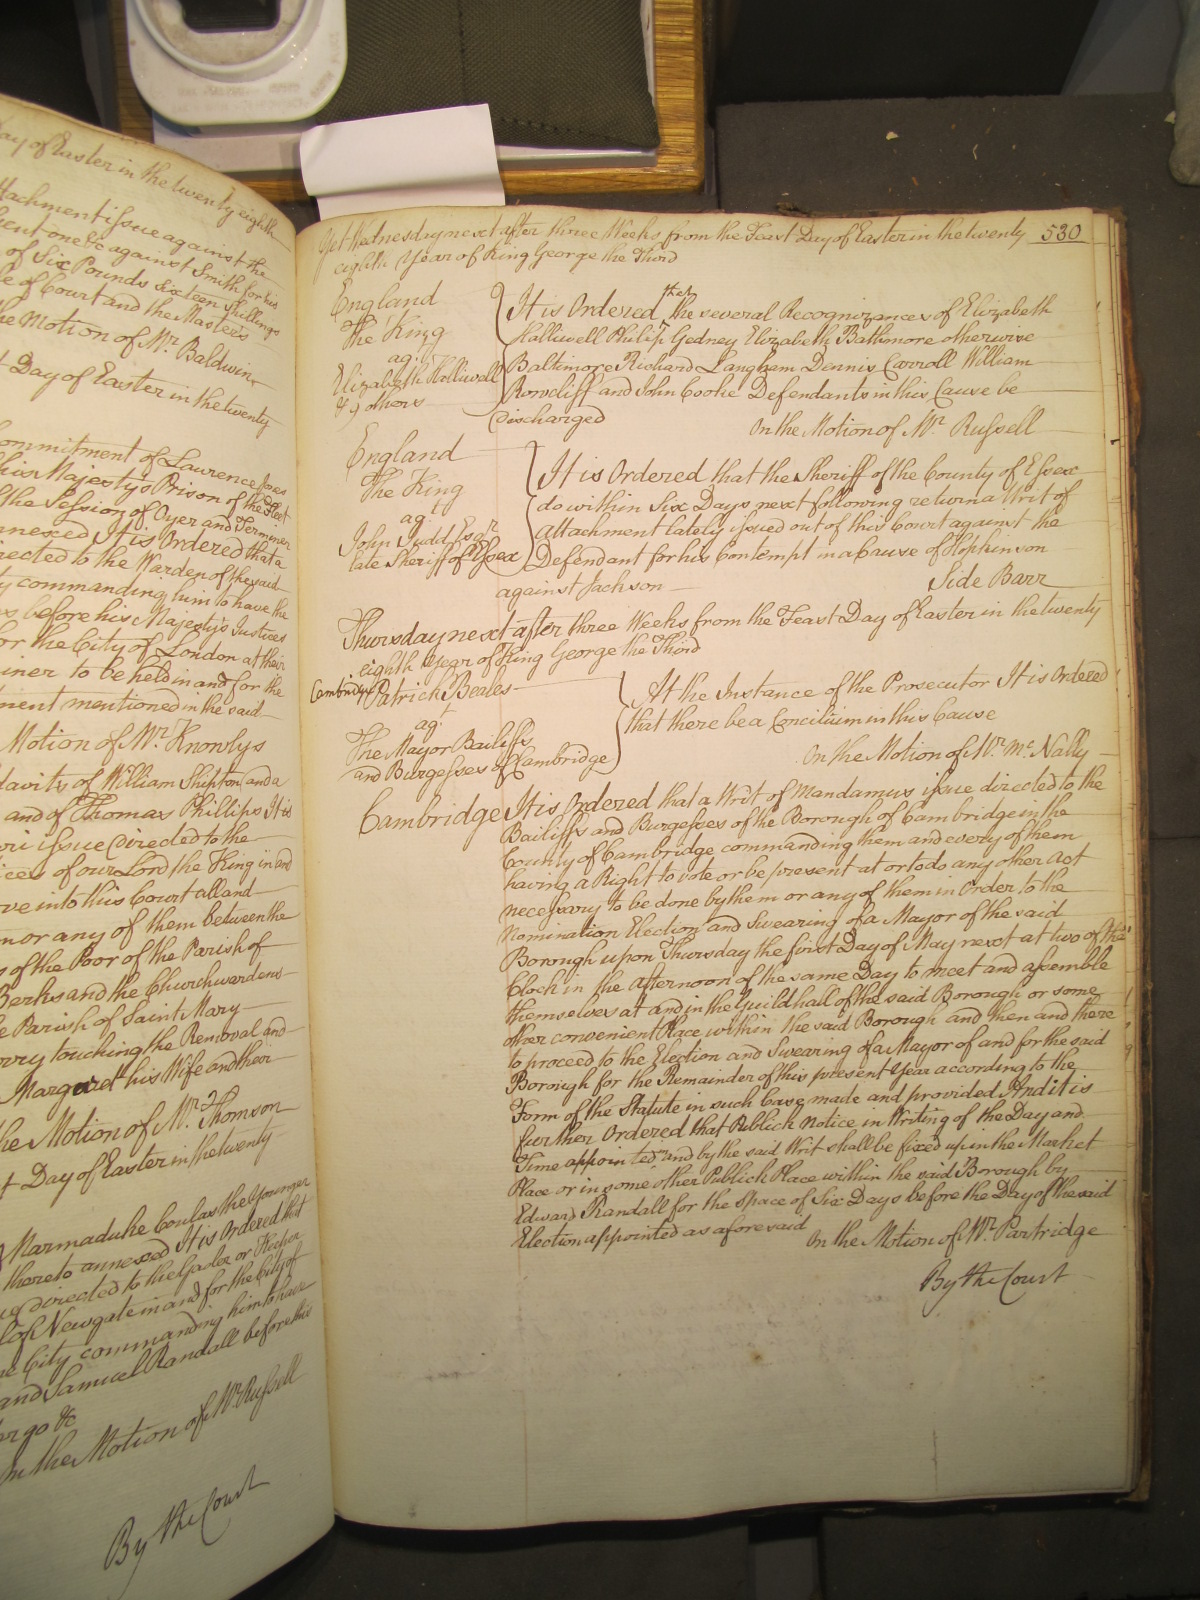 Day of Easter in the twenty eighth
Attachment issue against the
one &c against Smith for his
of Six Pounds Sixteen Shillings
of Court and the Master's
the Motion of Mr. Baldwin
Day of Easter in the twenty
Commitment of Lawrence Jones
his Majesty's Prison of the Fleet
the Session of Oyer and Terminer
annexed It is Ordered that a
directed to the Warden of the said
commanding him to have the
before his Majesty's Justices
for the City of London at their
to be held in and for the
mentioned in the said
Motion of Mr. Knowlys
of William Shipton and a
and of Thomas Phillips It is
issue Directed to the
of our Lord the King in and
into this Court all and
or any of them between the
of the Poor of the Parish of
Berks and the Churchwardens
Parish of Saint Mary
touching the Removal and
Margaret his Wife and their
the Motion of Mr. Thomson
Day of Easter in the twenty
Marmaduke Coulas the Younger
thereto annexed It is Ordered that
directed to the Gaoler or Keeper
of Newgate in and for the City of
City commanding him to have
and Samuel Randall before this
&c
On the Motion of Mr. Russell
By the Court
Yet Wednesday next after three Weeks from the Feast Day of Easter in the twenty 530
eighth Year of King George the Third
England
The King
agt.
Elizabeth Halliwell
& 9 others
It is Ordered that the several Recognizances of Elizabeth
Halliwell Philip Gedney Elizabeth Bathmore otherwise
Baltimore Richard Langham Dennis Carroll William
Rowcliff and John Cooke Defendants in this Cause be
discharged
On the Motion of Mr. Russell
England
The King
agt.
John Judd Esqr.
late Sheriff of Essex
It is Ordered that the Sheriff of the County of Essex
do within Six Days next following return a Writ of
attachment lately issued out of this Court against the
Defendant for his Contempt in a Cause of Hopkinson
against Jackson
Side Barr
Thursday next after three Weeks from the Feast Day of Easter in the twenty
eighth Year of King George the Third
Cambridge Patrick Beales
agt.
The Mayor Bailiffs
and Burgesses of Cambridge
At the Instance of the Prosecutor It is Ordered
that there be a Concilium in this Cause
On the Motion of Mr. McNally
Cambridge It is Ordered that a Writ of Mandamus issue directed to the
Bailiffs and Burgesses of the Borough of Cambridge in the
County of Cambridge commanding them and every of them
having a Right to vote or be present at or to do any other Act
necessary to be done by them or any of them in Order to the
Nomination Election and Swearing of a Mayor of the said
Borough upon Thursday the first Day of May next at two of the
Clock in the afternoon of the same Day to meet and assemble
themselves at and in the Guildhall of the said Borough or some
other convenient Place within the said Borough and then and there
to proceed to the Election and Swearing of a Mayor of and for the said
Borough for the Remainder of this present Year according to the
Form of the Statute in such Case made and provided And it is
further Ordered that Publick Notice in Writing of the Day and
Time appointed and by the said Writ shall be fixed up in the Market
Place or in some other Publick Place within the said Borough by
Edward Randall for the space of Six Days before the Day of the said
Election appointed as aforesaid
On the Motion of Mr. Partridge
By the Court